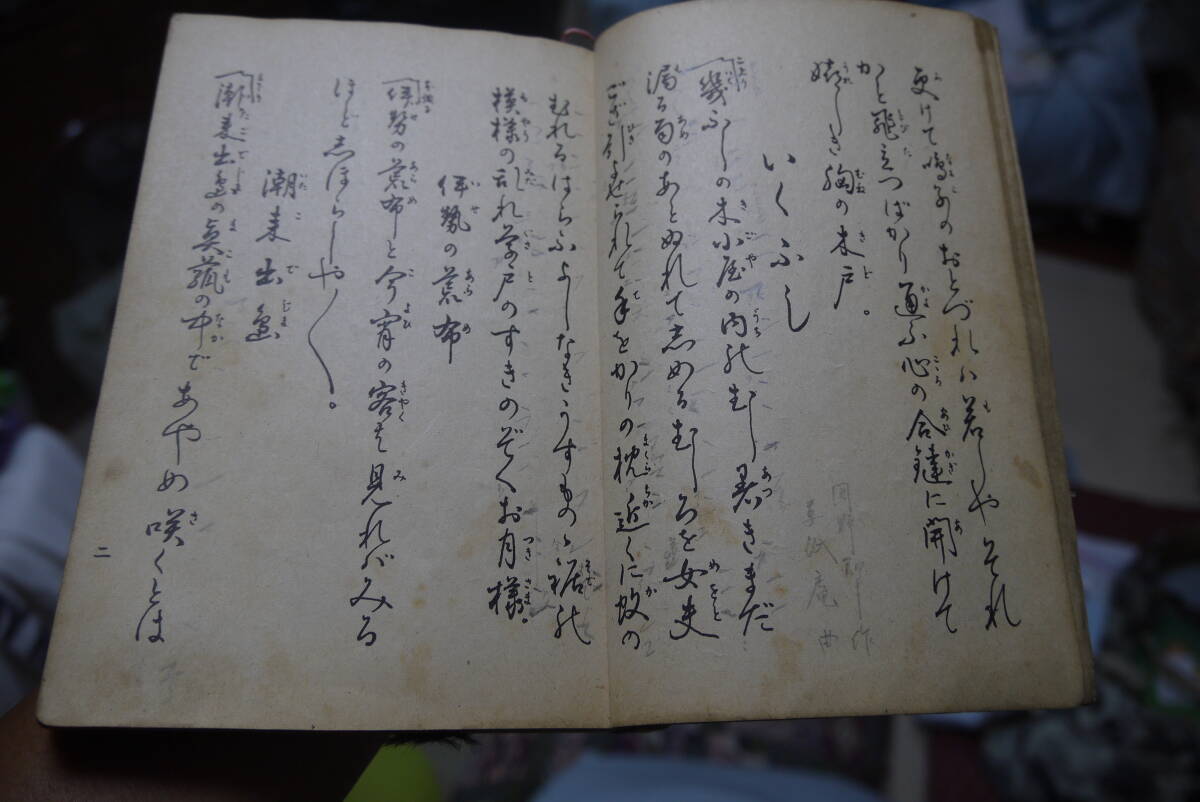 更けて鳴子のおとづれハ若しやそれ
かと飛立つばかり通ふ心の合鍵に開けて
嬉しき胸の木戸。
いくふし
幾ふしの木小屋の内のむし暑きまだ
濡る苗のあとぬれて志めるむしろを女夫
ござ引よせられて手をかりの枕近くに蚊の
むれるはらふよしなきうすもの裾の
模様の乱れ草戸のすきのぞくお月様。
伊勢の荒布
伊勢の荒布と今宵の客を見れバみる
ほど志ほらしや〱。
潮来出島
潮来出島の真菰の中であやめ咲くとは
二